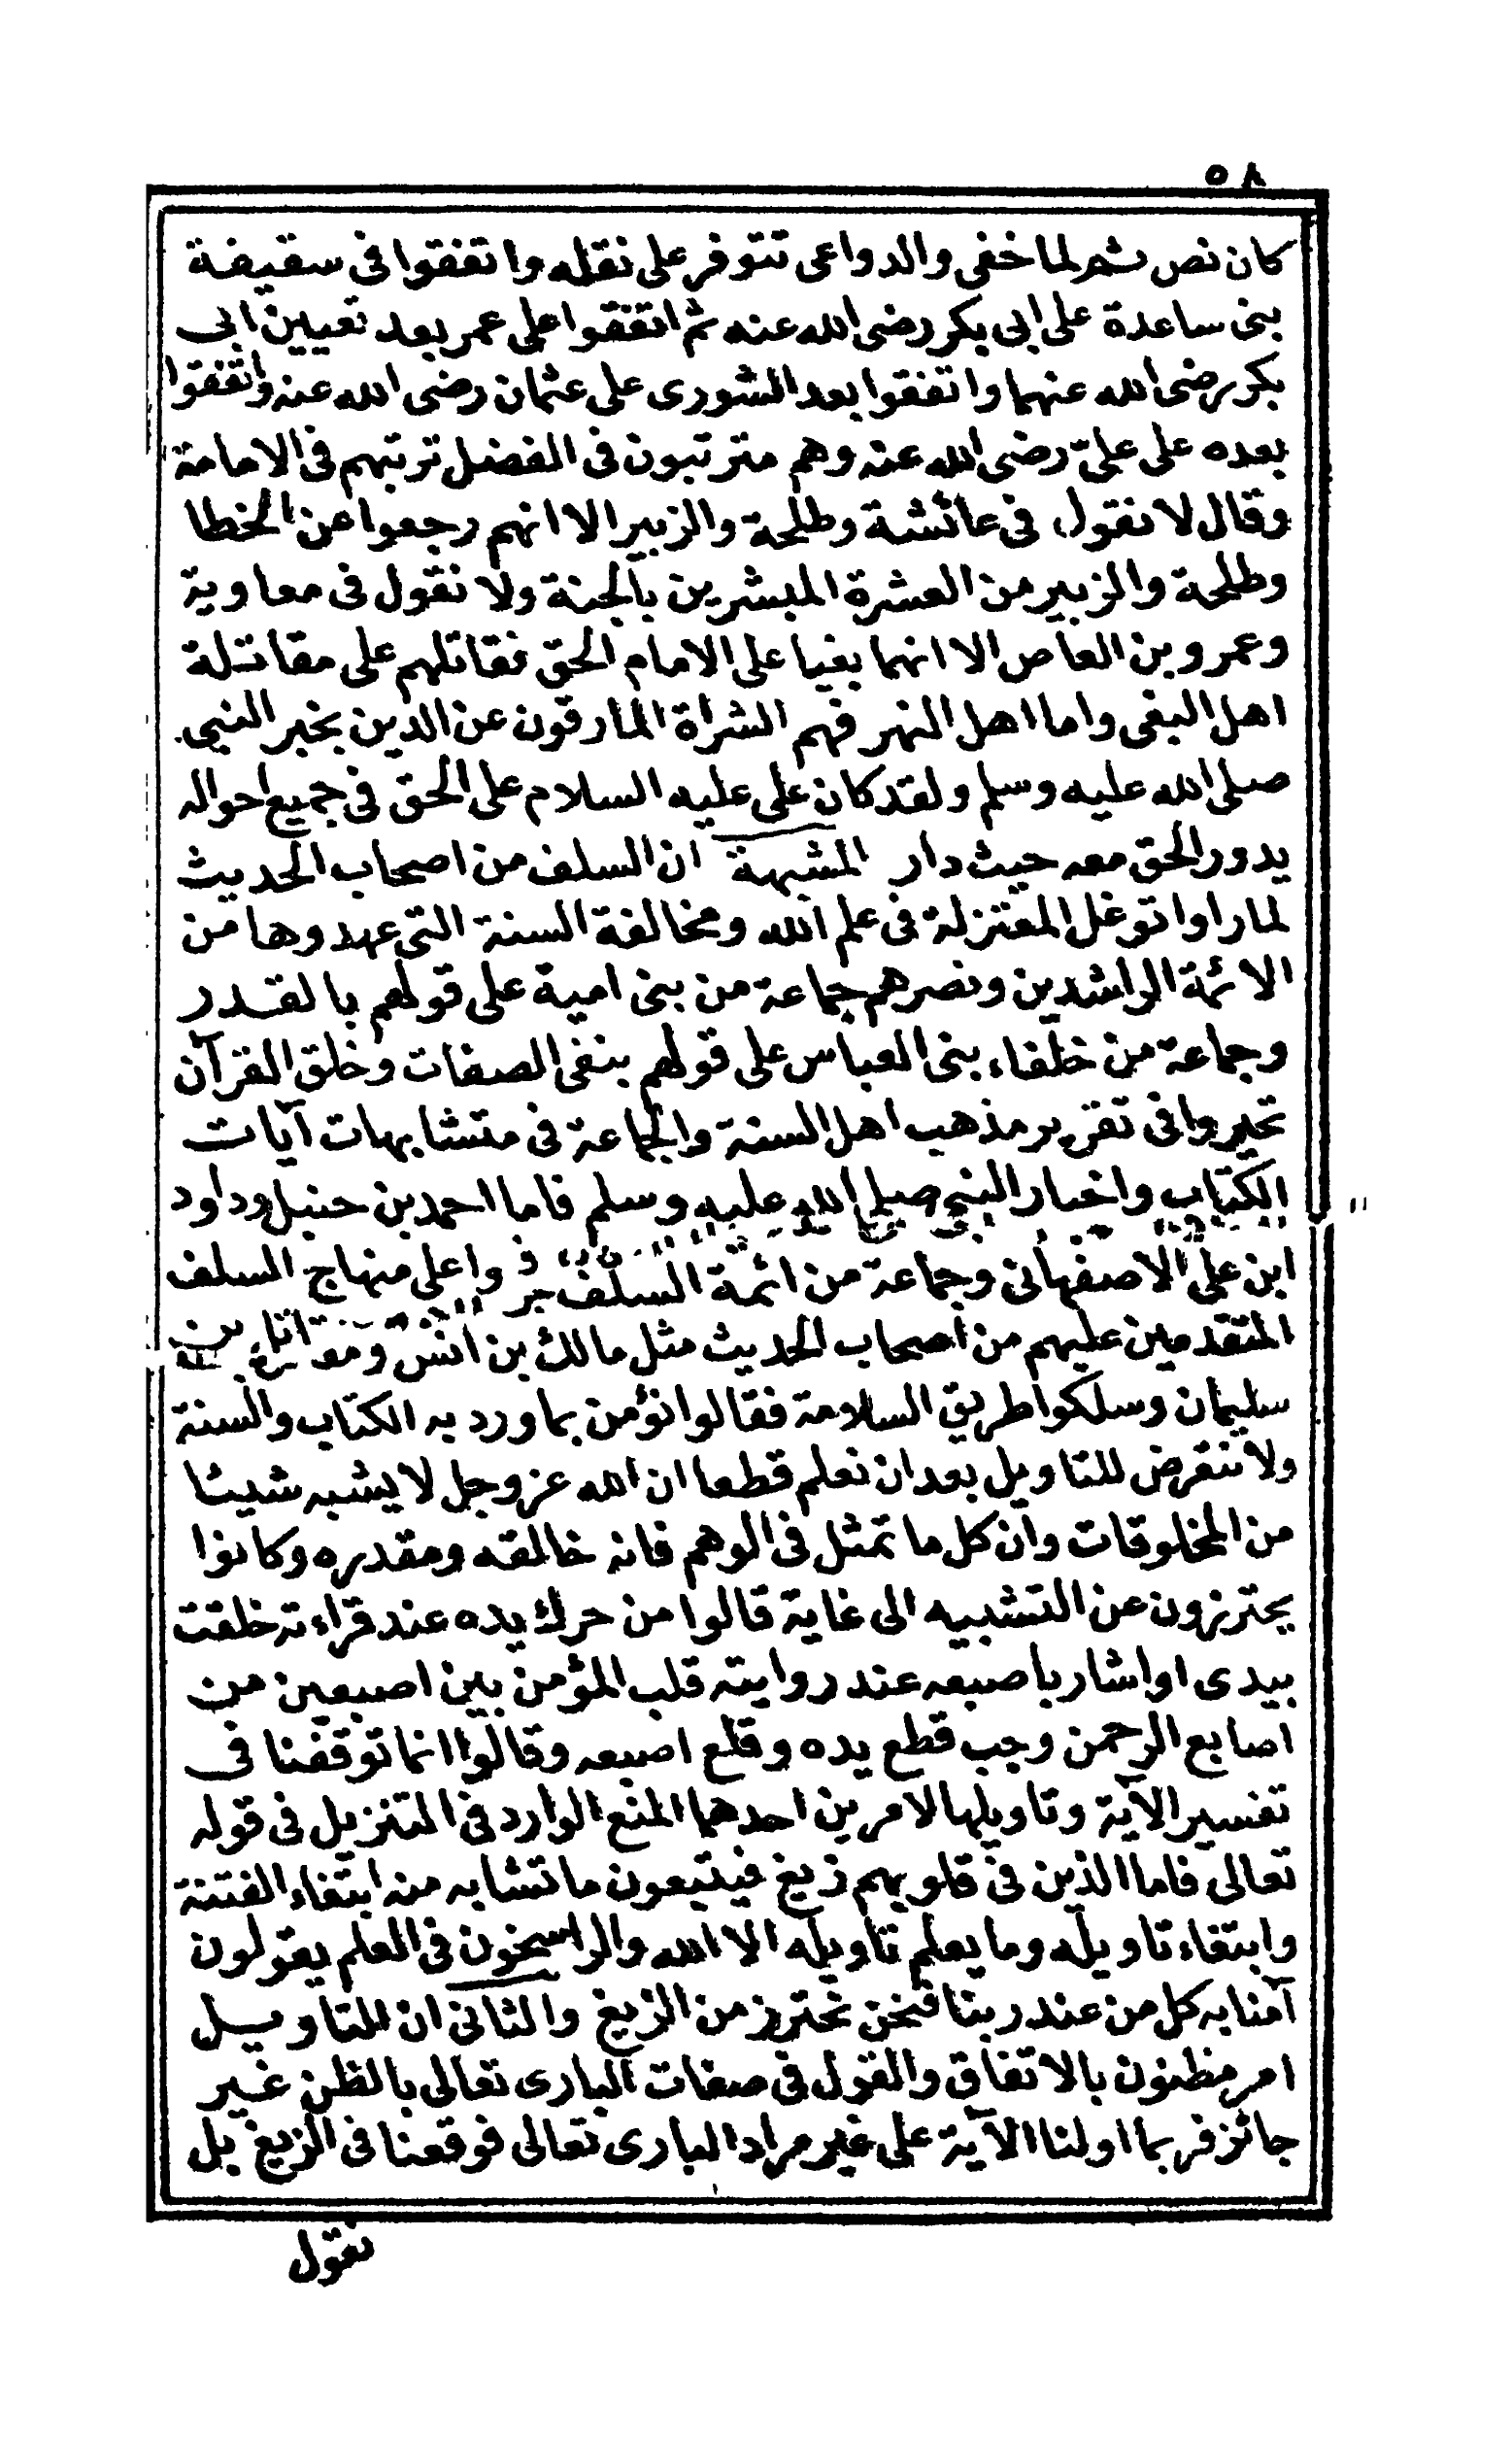 ٥٨
كان نص ثم لما خفى والدواعى تتوفر على نقله واتفقوا فى سقيفة
بنى ساعدة على ابى بكر رضى الله عنه ثم اتفقوا على عمر بعد تعيين ابى
بكر رضى الله عنهما واتفقوا بعد الشورى على عثمان رضى الله عنه واتفقوا
بعده على علىّ رضى الله عنه وهم مترتبون فى الفضل ترتبهم فى الامامة
وقال لا نقول فى عائشة وطلحة والزبير الا انهم رجعوا عن الخطا
وطلحة والزبير من العشرة المبشرين بالجنة ولا نقول فى معاوية
وعمرو بن العاص الا انهما بغيا على الامام الحق فقاتلهم على مقاتلة
اهل البغى واما اهل النهر فهم الشراة المارقون عن الدين بخبر النبى
صلى الله عليه وسلم ولقد كان على عليه السلام على الحق فى جميع احواله
يدور الحق معه حيث دار المشبهة ان السلف من اصحاب الحديث
لما راوا توغل المعتزلة فى علم الله ومخالفة السنة التى عهدوها من
الائمة الراشدين ونصرهم جماعة من بنى امية على قولهم بالقدر
وجماعة من خلفاء بنى العباس على قولهم بنفى الصفات وخلق القرآن
تحيروا فى تقرير مذهب اهل السنة والجماعة فى متشابهات آيات
الكتاب واخبار النبى صلى الله عليه وسلم فاما احمد بن حنبل وداود
ابن على الاصفهانى وجماعة من ائمة السلف جروا على منهاج السلف
المتقدمين عليهم من اصحاب الحديث مثل مالك بن انس ومقاتل بن
سليمان وسلكوا طريق السلامة فقالوا نؤمن بما ورد به الكتاب والسنة
ولا نتعرض للتاويل بعد ان نعلم قطعا ان الله عز وجل لا يشبه شيئا
من المخلوقات وان كل ما تمثل فى الوهم فانه خالقه ومقدره وكانوا
يحترزون عن التشبيه الى غاية قالوا من حرك يده عند قراءته خلقت
بيدى او اشار باصبعه عند روايته قلب المؤمن بين اصبعين من
اصابع الرحمن وجب قطع يده وقلع اصبعه وقالوا انما توقفنا فى
تفسير الآية وتاويلها لامرين احدهما المنع الوارد فى التنزيل فى قوله
تعالى فاما الذين فى قلوبهم زيغ فيتبعون ما تشابه منه ابتغاء الفتنة
وابتغاء تاويله وما يعلم تاويله الا الله والراسخون فى العلم يقولون
آمنا به كل من عند ربنا فنحن نحترز من الزيغ والثانى ان التاويل
امر مظنون بالاتفاق والقول فى صفات البارى تعالى بالظن غير
جائز فربما اولنا الآية على غير مراد البارى تعالى فوقعنا فى الزيغ بل
نقول